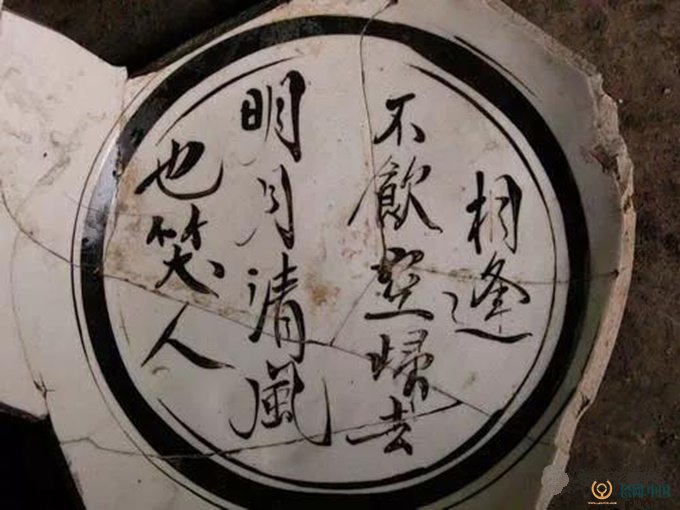 相逢
不飲空歸去
明月清風
也笑人